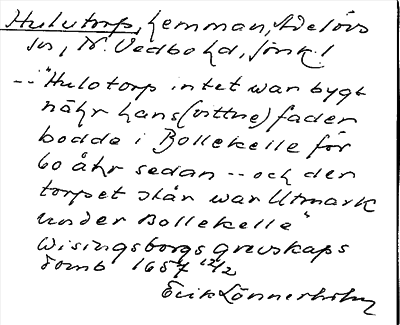 Hulutorp, Lemman, Adelövs
sn, N. Vedbo hd, Jönk. l
--"Hulotorp intet war bygt
nähr hans (vittne) fader
bodde i Bollekelle för
60 åhr sedan -- och der
torpet står war Utmark
under Bollekelle"
Wisingsborgs grevskaps
domb 1657 12/2
Erik Lönnerholm